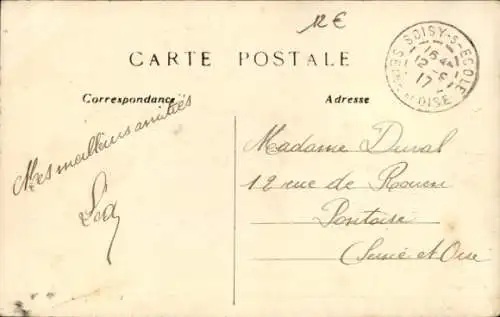 12 €
CARTE POSTALE
Correspondance
Adresse
SOISY-S-ECOLE
16 45
12 - 6
17
SEINE-ET-OISE
Mes meilleures amitiés
Madame Duval
12 rue de Rouen
Pontoise
(Seine et Oise